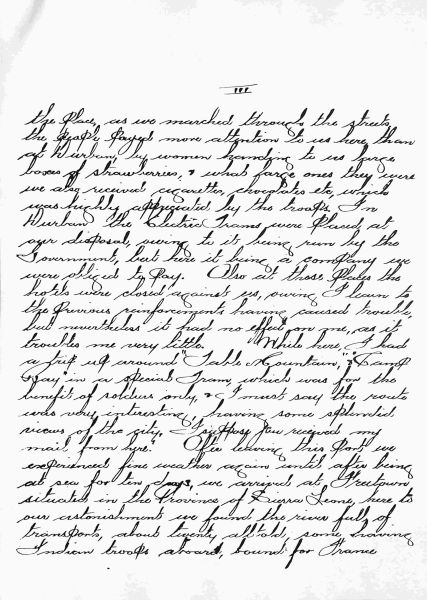 III
the place, as we marched through the streets,
the people payed more attention to us here, than
at Durban, by women handing to us large
boxes of strawberries, & what large ones they were
we also received cigarettes, chocolates etc, which
was highly appreciated by the troops. In
Durban the Electric Trams were placed at
our disposal, owing to it being run by the
Government, but here it being a company we
were obliged to pay. Also at these places the
hotels were closed against us, owing I learn to
the previous reinforcements having caused trouble,
but nevertheless it had no effect on me, as it
troubles me very little. While here, I had
a trip up around "Table Mountain," & "Camp
Bay" in a special Tram, which was for the
benefit of soldiers only, & I must say the route
was very interesting, having some splendid
views of the city. I suppose you received my
mail from here. After leaving this port we
experienced fine weather again until after being
at sea for ten days, we arrived at Freetown
situated in the Province of Sierra Leone, here to
our astonishment we found the river full of
transports, about twenty all told, some having
Indian troops aboard, bound for France